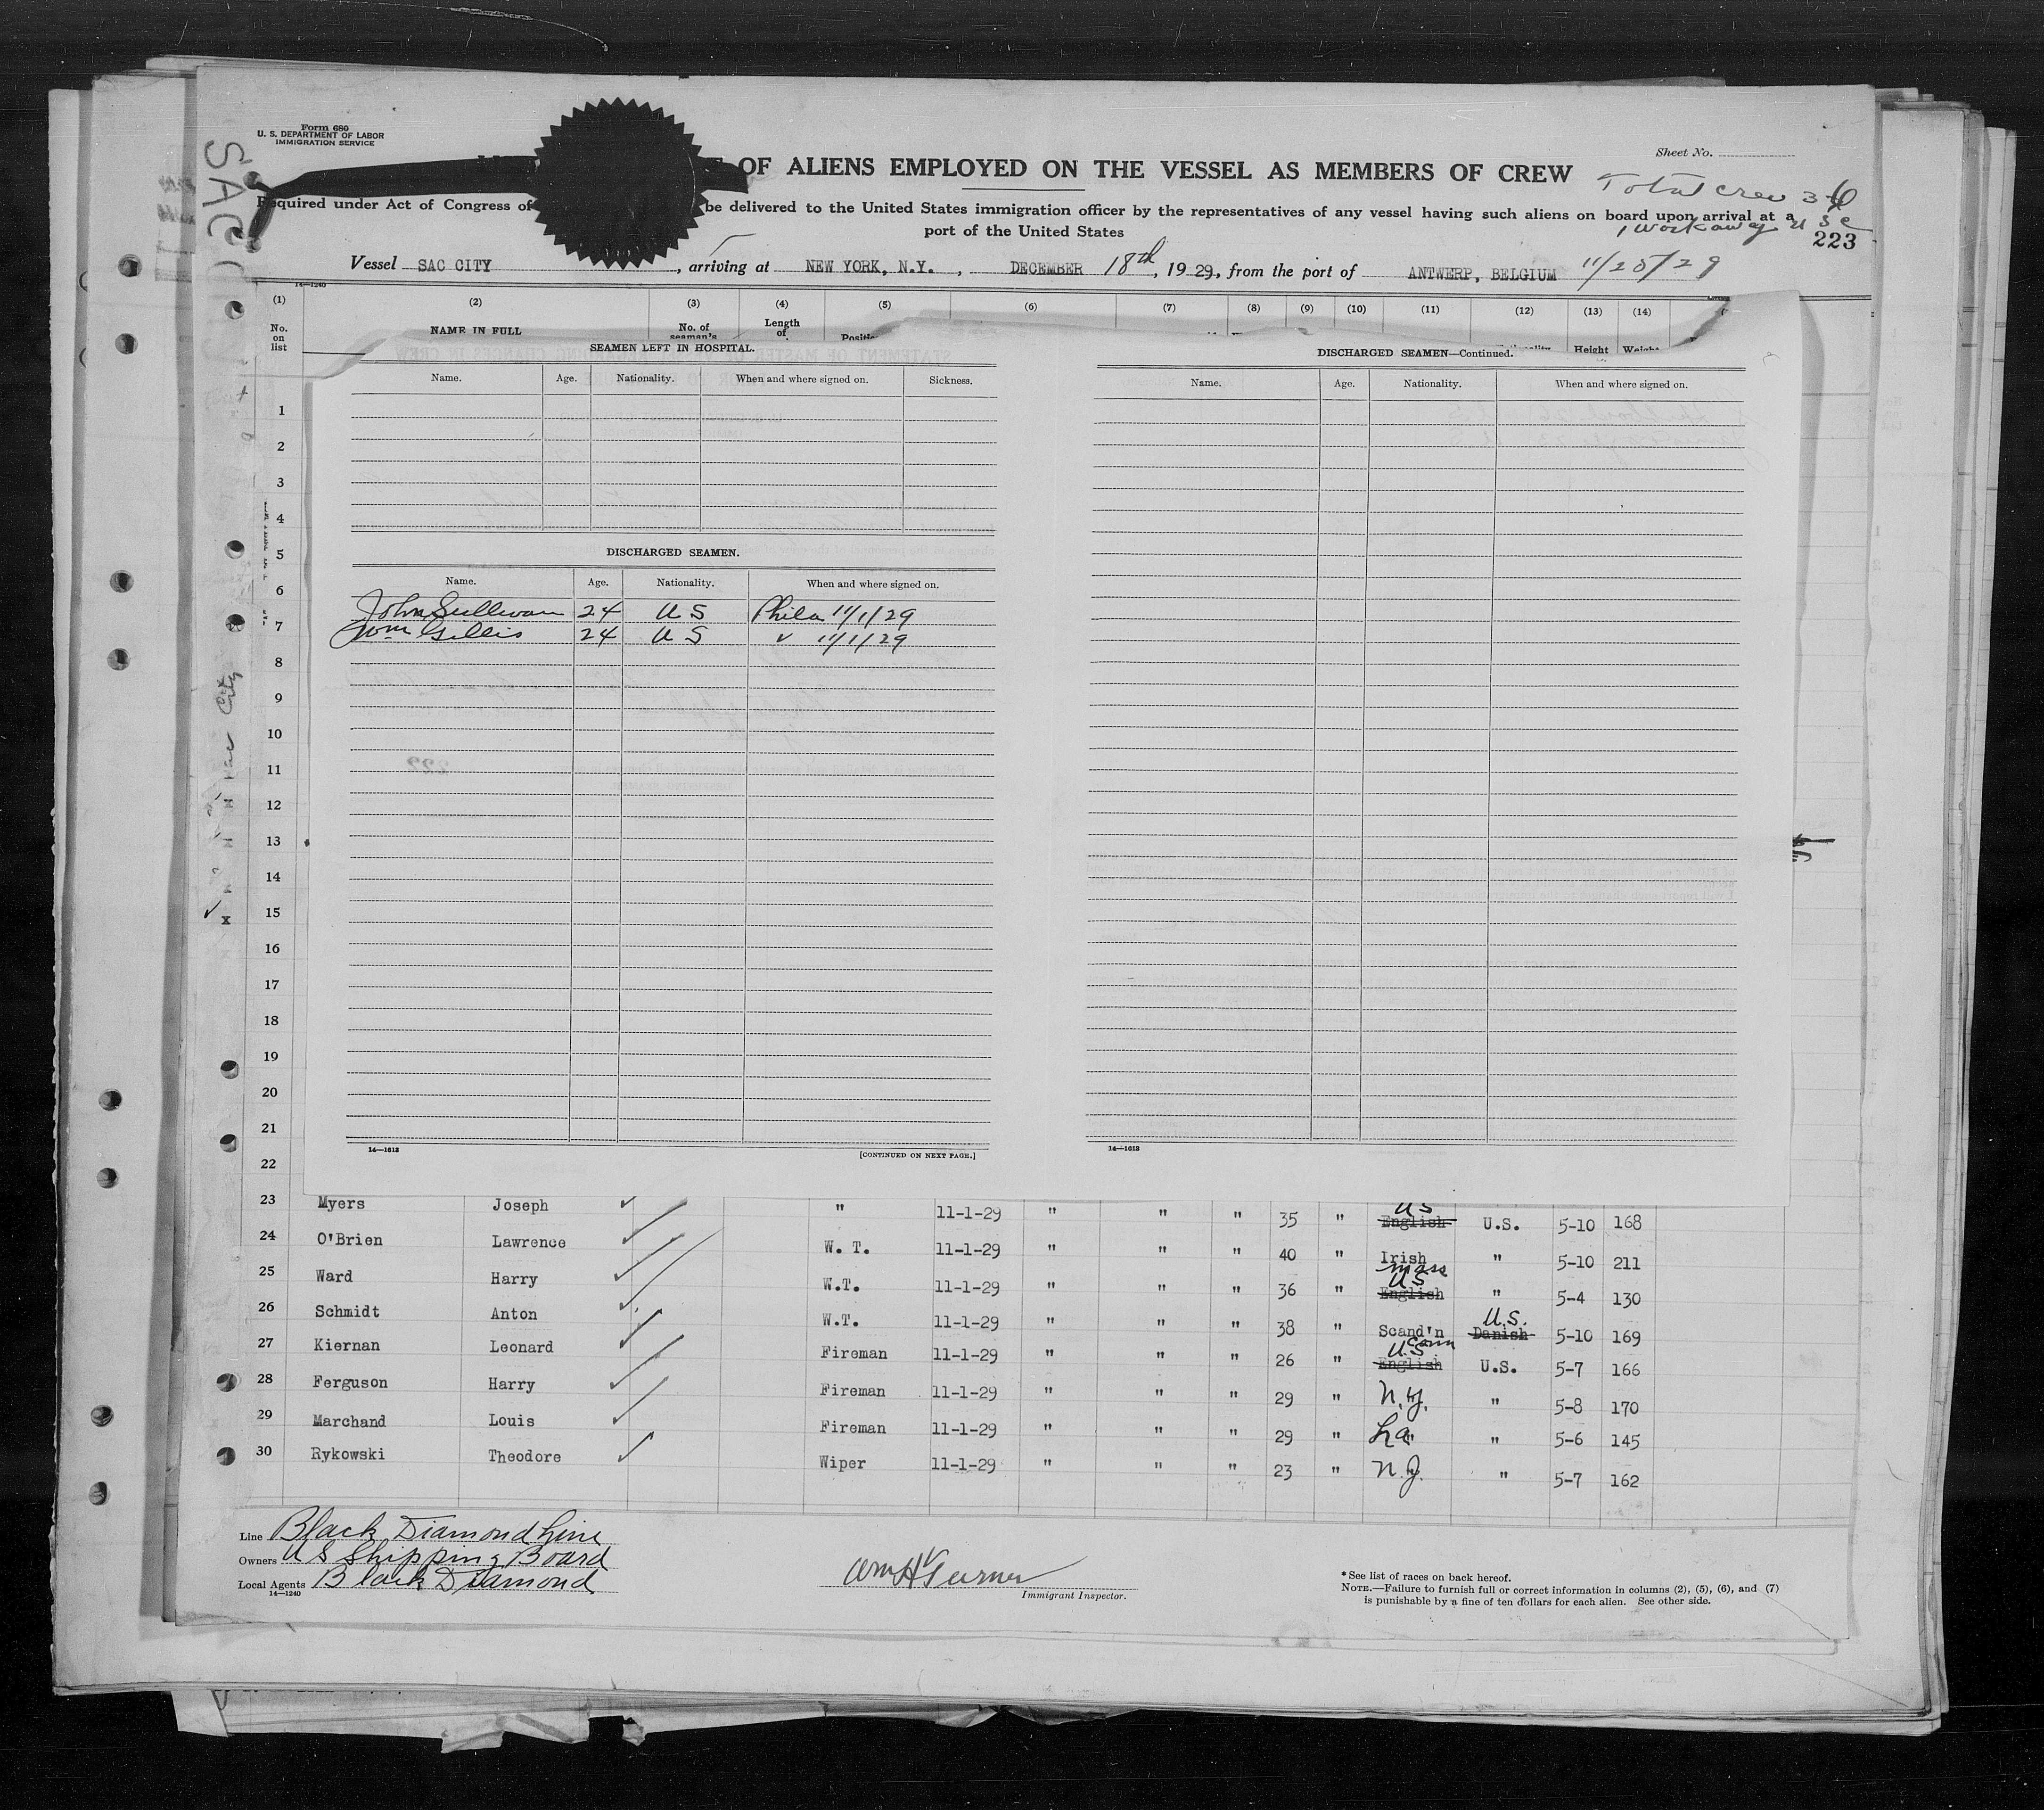 Form 680
U. S. DEPARTMENT OF LABOR
IMMIGRATION SERVICE
SAC
OF ALIENS EMPLOYED ON THE VESSEL AS MEMBERS OF CREW
Sheet No.
Total crew 36
Required under Act of Congress of be delivered to the United States immigration officer by the representatives of any vessel having such aliens on board upon arrival at a
port of the United States
1 workaway U S C
223
Vessel SAC CITY, arriving at NEW YORK, N.Y., DECEMBER 18th, 1929, from the port of ANTWERP, BELGIUM 11/25/29
14—1240
(1) (2) (3) (4) (5) (6) (7) (8) (9) (10) (11) (12) (13) (14)
No. on list NAME IN FULL No. of seaman's Length of Height Weight
SEAMEN LEFT IN HOSPITAL.
Name. Age. Nationality. When and where signed on. Sickness.
DISCHARGED SEAMEN.
Name. Age. Nationality. When and where signed on.
John Sullivan 24 U S Phila 11/1/29
Tom Gillis 24 U S " 11/1/29
14—1613
[CONTINUED ON NEXT PAGE.]
DISCHARGED SEAMEN—Continued.
Name. Age. Nationality. When and where signed on.
14—1613
1
2
3
4
5
6
7
8
9
10
11
12
13
14
15
16
17
18
19
20
21
22
23 Myers Joseph " 11-1-29 " " " 35 " English US U.S. 5-10 168
24 O'Brien Lawrence W. T. 11-1-29 " " " 40 " Irish " 5-10 211
25 Ward Harry W.T. 11-1-29 " " " 36 " English Mass US " 5-4 130
26 Schmidt Anton W.T. 11-1-29 " " " 38 " Scand'n Danish U.S. 5-10 169
27 Kiernan Leonard Fireman 11-1-29 " " " 26 " English Conn U.S U.S. 5-7 166
28 Ferguson Harry Fireman 11-1-29 " " " 29 " N.Y. " 5-8 170
29 Marchand Louis Fireman 11-1-29 " " " 29 " La " 5-6 145
30 Rykowski Theodore Wiper 11-1-29 " " " 23 " N.J. " 5-7 162
Line Black Diamond Line
Owners U S Shipping Board
Local Agents Black Diamond
14—1240
Wm H Turner
Immigrant Inspector.
* See list of races on back hereof.
NOTE.—Failure to furnish full or correct information in columns (2), (5), (6), and (7)
is punishable by a fine of ten dollars for each alien. See other side.